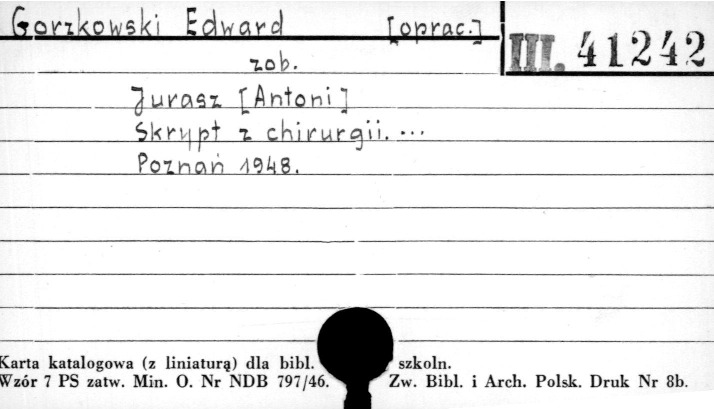 Gorzkowski Edward [oprac.]
III. 41242
zob.
Jurasz [Antoni]
Skrypt z chirurgii. ...
Poznań 1948.
Karta katalogowa (z liniaturą) dla bibl. szkoln.
Wzór 7 PS zatw. Min. O. Nr NDB 797/46. Zw. Bibl. i Arch. Polsk. Druk Nr 8b.